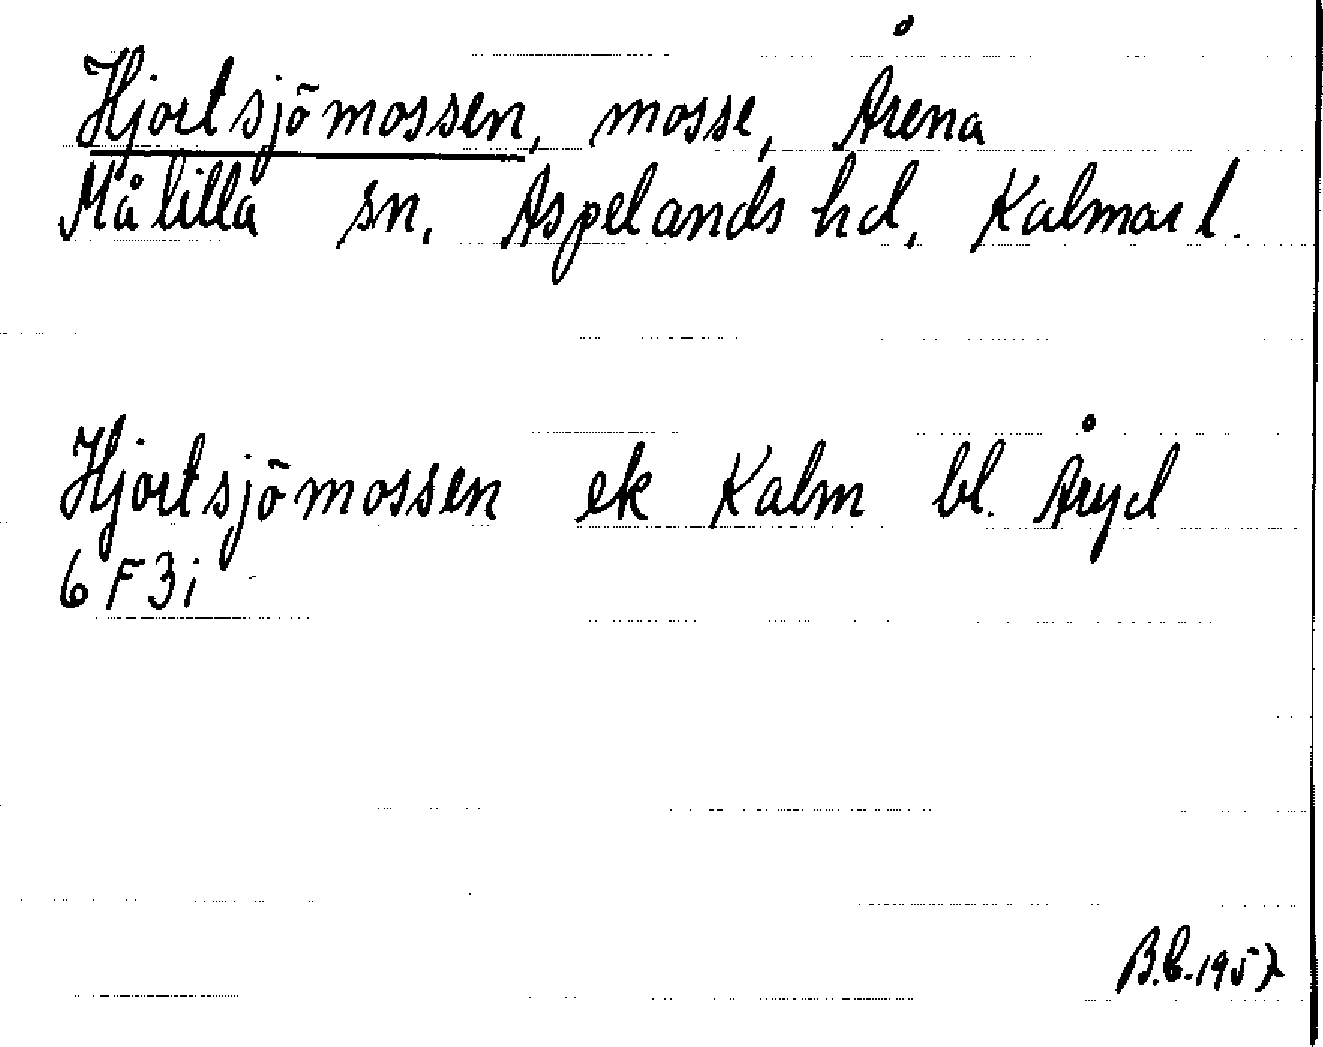 Hjortsjömossen, mosse, Årena
Målilla sn, Aspelands hd, Kalmar l.
Hjortsjömossen ek Kalm bl. Åryd
6 F 3i
B.L. 1957